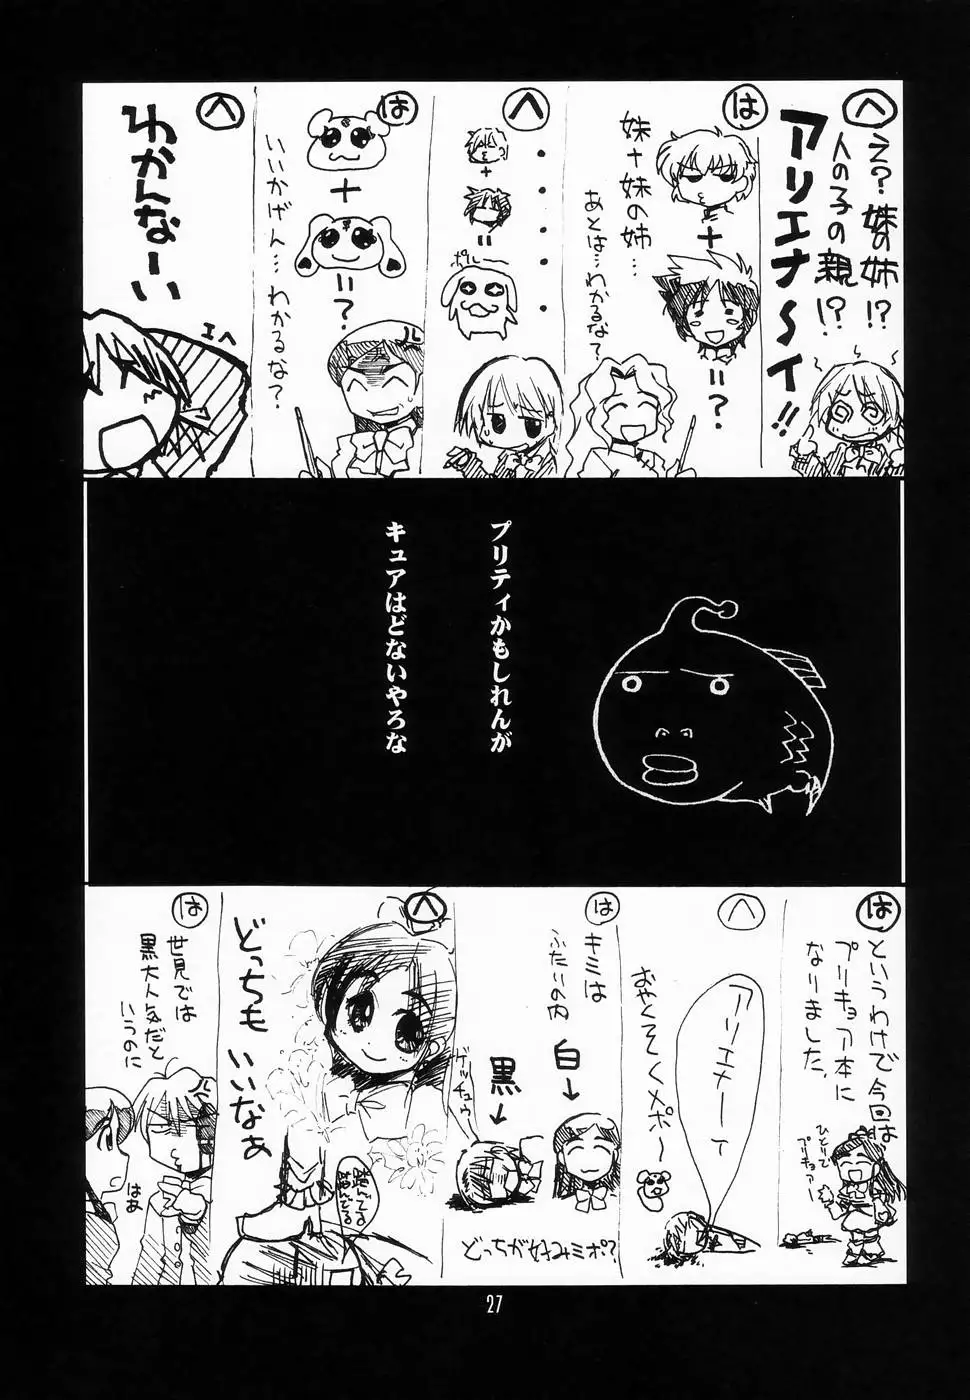 へ
え?妹の姉!?
人の子の親!?
アリエナ～イ!!
は
妹+妹の姉…
あとは…わかるな?
+
=?
へ
・・・・・・
+
=
ポルー
は
+
=?
いいかげん…わかるな?
へ
わかんなーい
エヘ
プリティかもしれんが
キュアはどないやろな
は
というわけで今回は
プリキュア本に
なりました。
ひとりで
プリキュアー
へ
アリエナーイ
おやくそくメポ～
は
キミは
ふたりの内
白→
黒→
ゲッチュウ
どっちが好みミポ?
へ
どっちも
いいなぁ
踏んでる
踏んでる
は
世見では
黒大人気だと
いうのに
はぁ
27